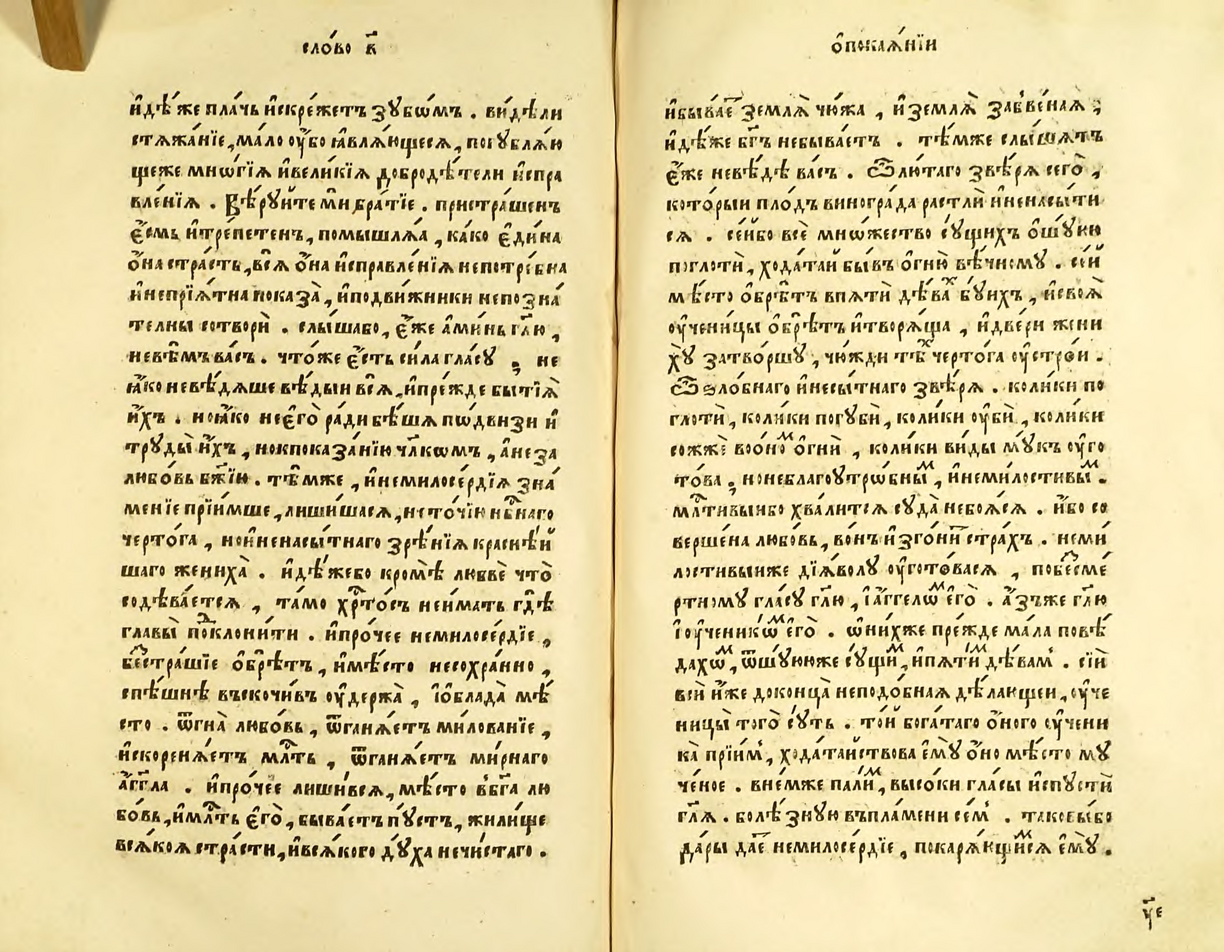 сло́во к҃
и҆дѣ́же пла́чь и҆скре́жетъ зꙋбѡ́мъ . ви́дѣли
стѧжа́нїе, ма́ло ᲂу҆́бо ꙗ҆влѧ́ющеесѧ, погꙋблѧ́ю
щеже мнѡ́гїѧ и҆вели́кїѧ добродѣ́тели и҆спра
вле́нїѧ . вѣ́рꙋйте мѝ бра́тїе . пристра́шенъ
є҆́смь и҆тре́петенъ, помышлѧ́ѧ, ка́ко є҆ди́на
ѻ҆на̀ стра́сть, всѧ̑ ѻ҆на̀ и҆справле́нїѧ непотре́бна
и҆непрїѧ́тна показа̀, и҆подви́жники непозна́
телны сотворѝ . слы́шабо, є҆́же а҆ми́нь гл҃ю,
невѣ́мъ ва́съ . что́же є҆́сть си́ла гла́сꙋ , не
ꙗ҆́ко невѣ́дѧше вѣ́дыи всѧ̑, и҆пре́жде бытїѧ̀
и҆́хъ . ноꙗ҆́ко неє҆гѡ̀ ра́ди бѣ́шѧ по́двизи и҆
трꙋды̀ и҆́хъ, нокпоказа́нїю чл҃кѡмъ, а҆неза
любо́вь бж҃їю . тѣ́мже, и҆немилосе́рдїѧ зна́
менїе прїи́мше, лиши́шасѧ, неточїю нбⷭ҇наго
черто́га, нои҆ненасы́тнаго зрѣ́нїѧ краснѣ́й
шаго жениха̀ . и҆дѣ́жебо кромѣ̀ любвѐ что̀
содѣва́етсѧ, та́мо хрⷭ҇то́съ неи́мать гдѣ̀
главы̀ поⷣклони́ти . и҆про́чее немилосе́рдїе,
беⷥстра́шїе ѻ҆брѣ́тъ, и҆мѣ́сто несохра́нно,
спѣ́шнѣ въскочи́въ ᲂу҆держа̀, і҆ѻ҆блада̀ мѣ́
сто . ѿгна̀ любо́вь, ѿганѧ́етъ милова́нїе,
и҆скоренѧ́етъ млⷭ҇ть, ѿганѧ́етъ ми́рнаго
а҆́гг҃ла . и҆про́чее лиши́всѧ, мѣ́сто вбг҃а лю
бо́вь, и҆млⷭ҇ть є҆го̀, быва́етъ пꙋ́стъ, жили́ще
всѧ́коѧ стра́сти, и҆всѧ́кого дꙋ́ха нечи́стаго .
ѻ҆покаѧ́нїи
и҆быва́еⷮ землѧ̀ чю́жа, и҆землѧ̀ забве́наѧ ;
и҆дѣ́же бг҃ъ небыва́етъ . тѣ́мже слы́шѧтъ
є҆́же невѣ́дѣ ва́съ . ѽ лю́таго звѣ́рѧ сего̀,
которыи пло́дъ виногра́да растлѝ и҆ненасы́ти
сѧ . се́йбо всѐ мно́жество сꙋ́щихъ ѻ҆шꙋ́юю
поглотѝ, хода́тай бы́въ ѻ҆гню̀ вѣ́чномꙋ . се́й
мѣ́сто ѻ҆брѣ́тъ впѧтѝ дѣ́ваⷯ бꙋ́ихъ, и҆своѧ̀
ᲂу҆ченицы ѻ҆брѣ́тъ и҆творѧ́ща, и҆две́ри жени
хꙋ̀ затво́ршꙋ, чю́жди тѣⷯ черто́га ᲂу҆стро́и .
ѽ ѕло́бнаго и҆несы́тнаго звѣ́рѧ . коли́ки по
глотѝ, коли́ки погꙋбѝ, коли́ки ᲂу҆бѝ, коли́ки
сожжѐ воѻ҆ноⷨ ѻ҆гнѝ, коли́ки ви́ды мꙋ́къ ᲂу҆го
то́ва, нонеблагоꙋтро́бныⷨ, и҆немилостивыⷨ .
млⷭ҇тивыибо хва́литсѧ сꙋда̀ небоѧ́сѧ . и҆́бо со
верше́на любо́вь, во́нъ и҆згониⷮ стра́хъ . неми
лостивыиже дїѧ́волꙋ ᲂу҆гото́васѧ, побеⷥсме́
ртномꙋ гла́сꙋ гл҃ю, і҆а҆́ггелѡⷨ є҆го̀ . а҆́зъже гл҃ю
і҆ᲂу҆ченикѡⷨ є҆го̀ . ѡ҆ни́хже пре́жде ма́ла повѣ́
дахѡⷨ, ѿшꙋ́ююже сꙋ́щиⷨ, и҆пѧтиⷨ дѣ́вамъ . сїи
всѝ и҆́же доконца̀ неподо́бнаѧ дѣ́лающеи, ᲂу҆че
ницы̀ того̀ сꙋ́ть . то́й бога́таго ѻ҆́ного ᲂу҆чени
ка̀ прїи́мъ, хода́тайствова є҆мꙋ̀ ѻ҆но̀ мѣ́сто мꙋ́
чное . внѐмже пали́ⷨ, высо́ки гла́сы и҆спꙋстѝ
гл҃ѧ . болѣ́знꙋю въпла́мени се́мъ . таковы́бо
да́ры дае́ⷮ немилосе́рдїе, покарѧ́ющиⷨсѧ є҆мꙋ̀ .